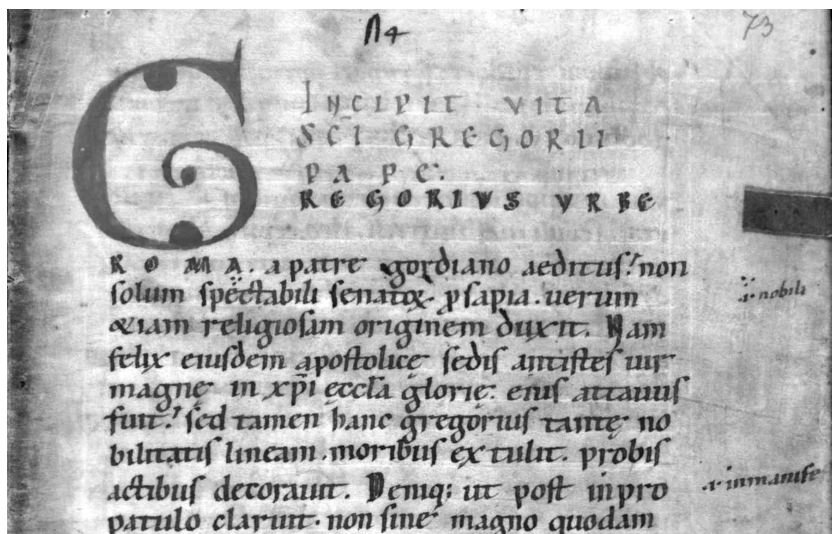 73
INCIPIT VITA
SC̄I GREGORII
PAPE:
GREGORIVS VRBE
ROMA. a patre gordiano aeditus. non
solum spectabili senatoꝝ ꝓsapia. uerum
&iam religiosam originem duxit. Nam
felix eiusdem apostolicę sedis antistes uir
magnę in xp̄i ęccl̄a glorię. eius attauus
fuit. sed tamen hanc gregorius tantę no
bilitatis lineam. moribus extulit. probis
actibus decorauit. Deniq; ut post in pro
patulo claruit. non sine magno quodam
nobili
in manife